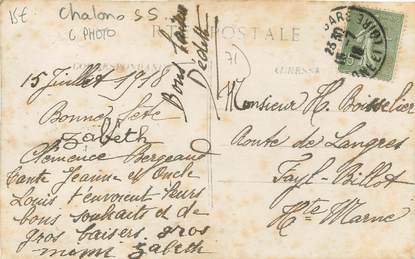 15€ Chalons S S
C. PHOTO
POSTALE
CORRESPONDANCE
ADRESSE
71
15 Juillet 1918
Bonne fête
Zabeth
Clémence Bergeaud
Tante Jeanne et Oncle
Louis t'envoient leurs
bons souhaits et de
gros baisers. gros
mimi Zabeth
Bons baisers
Dédeth
Monsieur H. Boisselier
Route de Langres
Fayl-Billot
Hte Marne